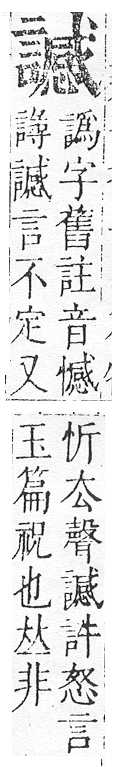 譌字舊註音憾
譐言不定又
忻厺聲許怒言
玉篇祝也𠀤非